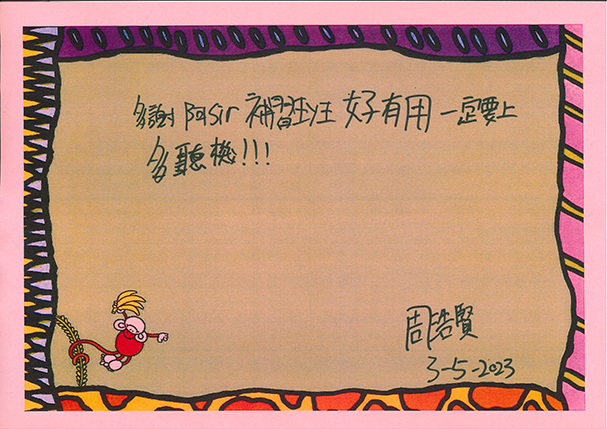 多謝 阿Sir 補習班 好有用 一定要上
多聽機!!!
周浩賢
3-5-2023